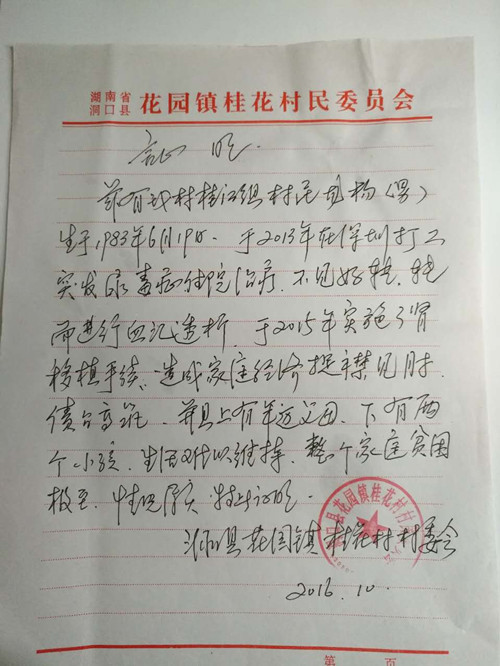 湖南省
洞口县 花园镇桂花村民委员会
证明
兹有我村桂江组村民 杨(男)
生于1983年6月19日.于2013年在深圳打工
突发尿毒症住院治疗.不见好转.转
而进行血记透析.于2015年实施了肾
移植手续.造成家庭经济捉襟见肘.
债台高筑.并且上有年迈父母.下有两
个小孩.生活难以维持.整个家庭贫困
极至.情况属实.特此证明.
洞口县花园镇桂花村村委会
2016.10.
洞口县花园镇桂花村村
第 页